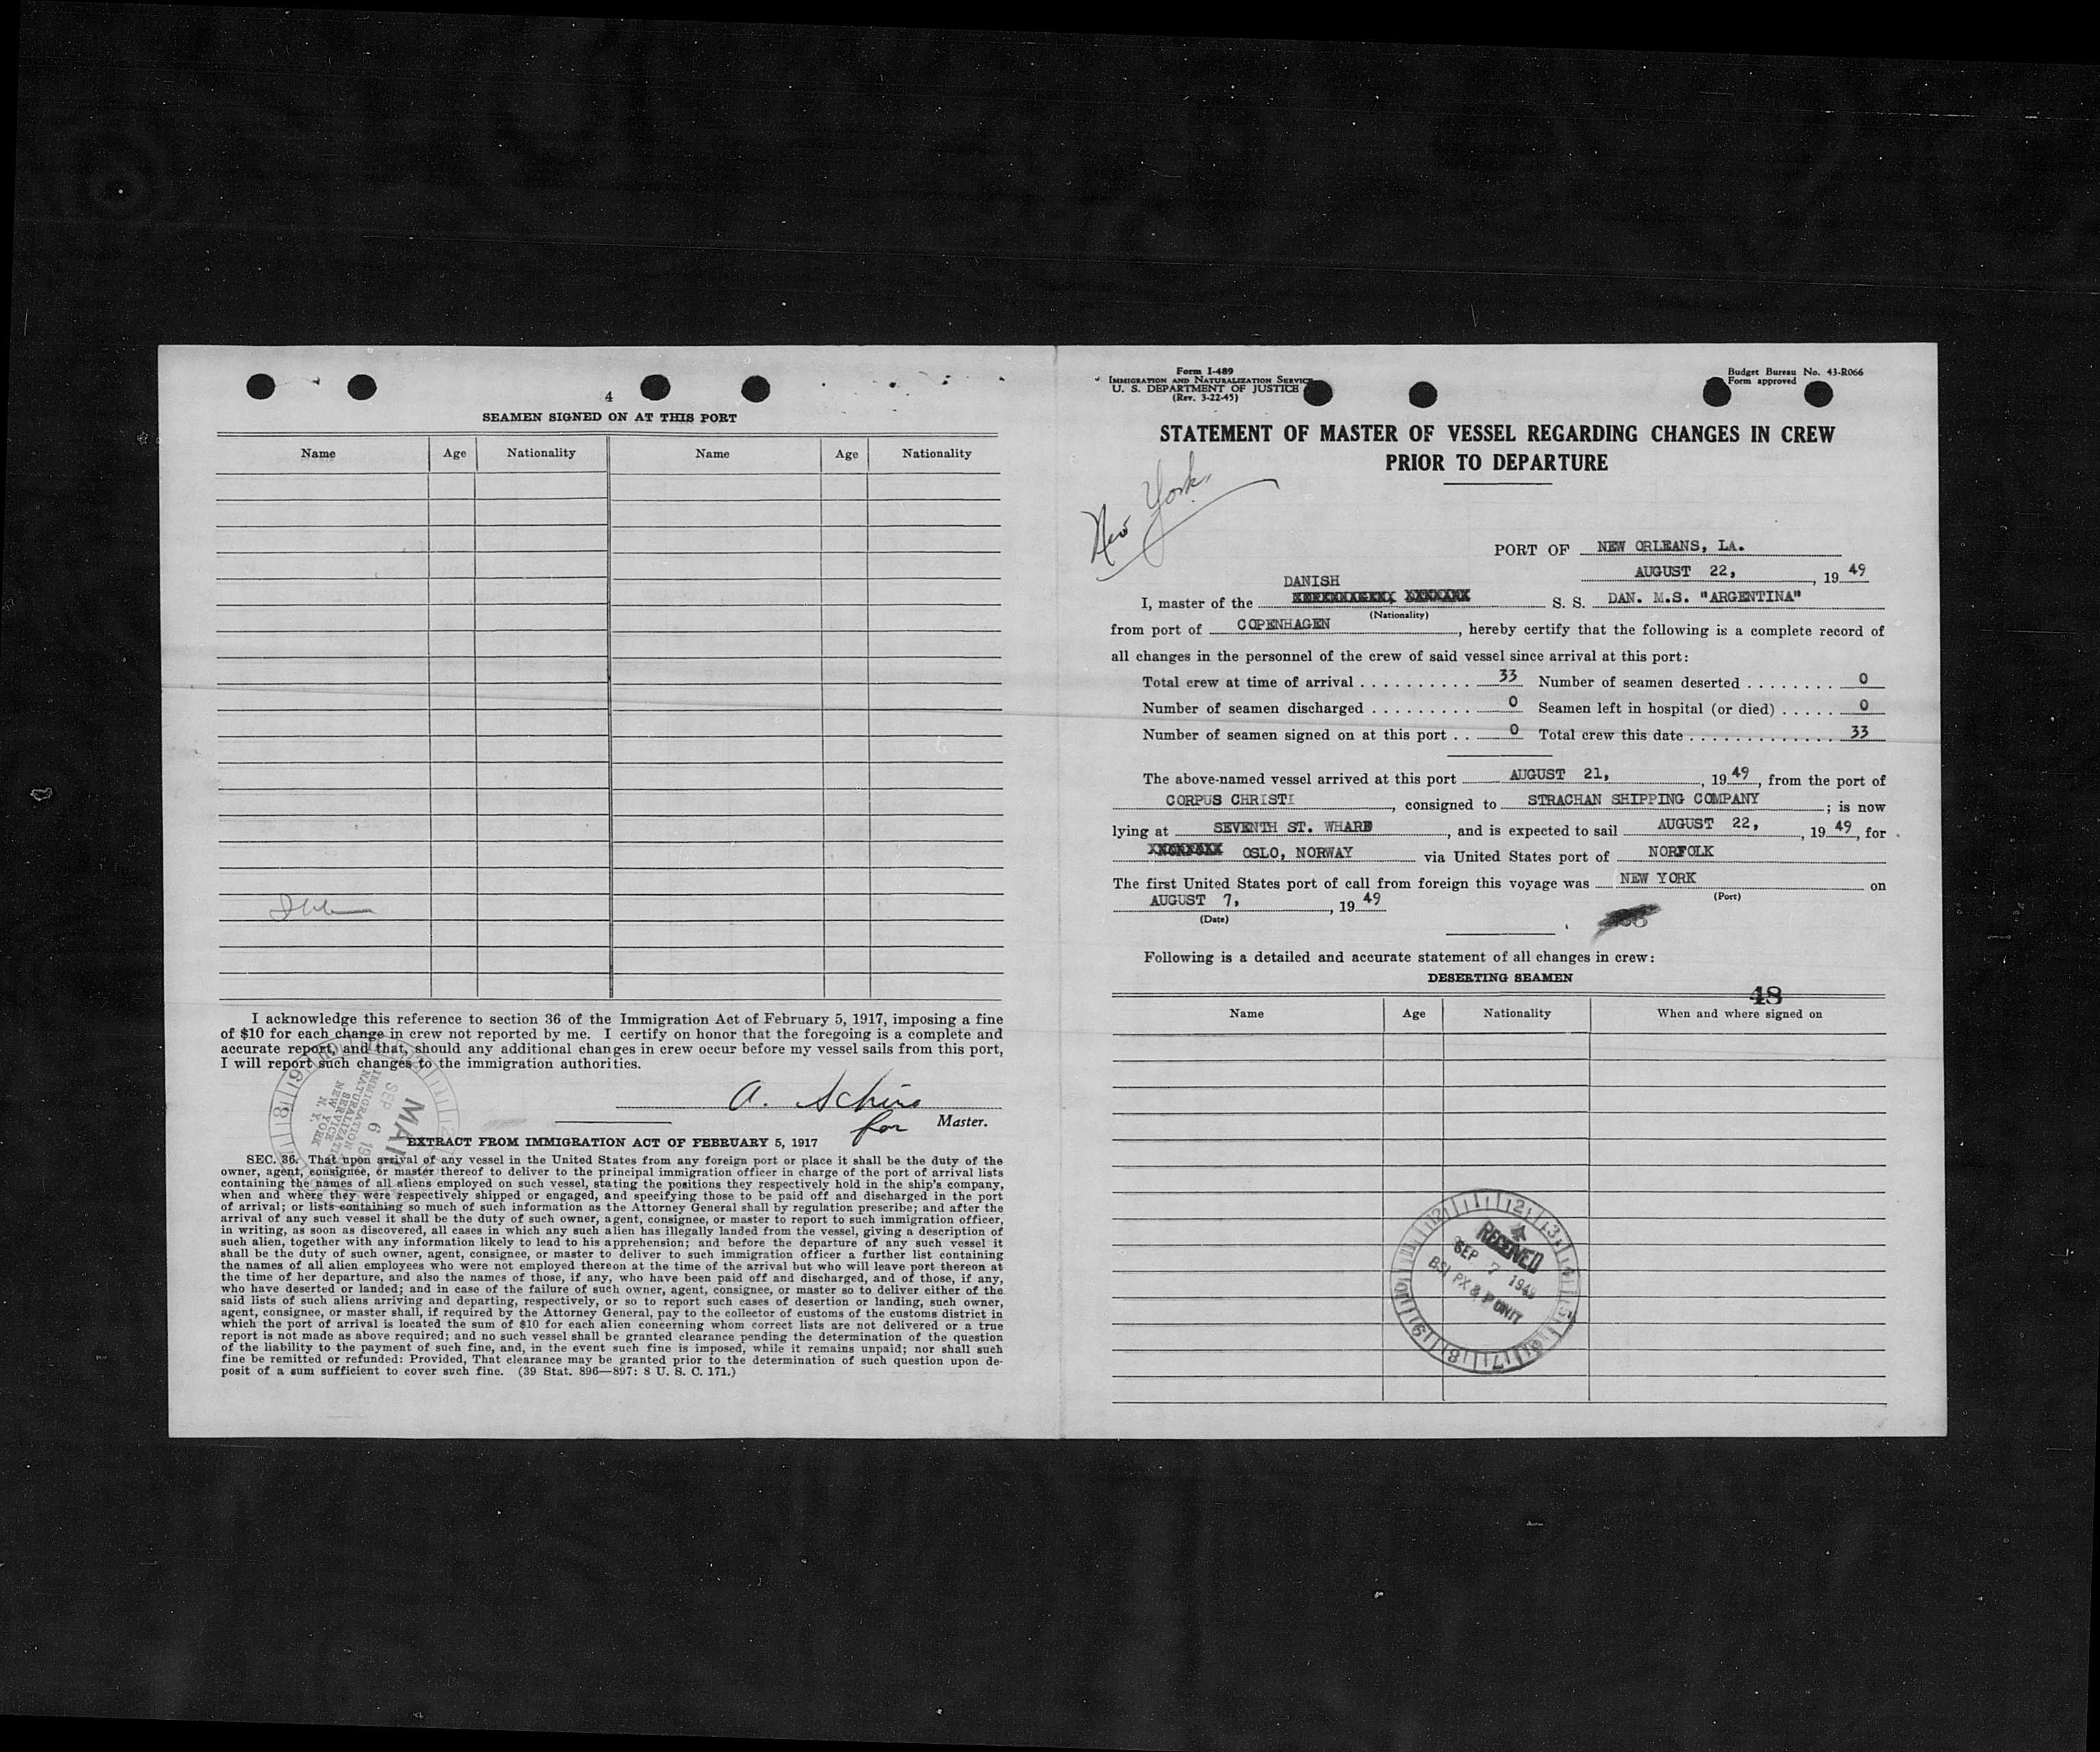 4
SEAMEN SIGNED ON AT THIS PORT
Name Age Nationality Name Age Nationality
I acknowledge this reference to section 36 of the Immigration Act of February 5, 1917, imposing a fine
of $10 for each change in crew not reported by me. I certify on honor that the foregoing is a complete and
accurate report, and that, should any additional changes in crew occur before my vessel sails from this port,
I will report such changes to the immigration authorities.
MAIL
SEP 6
IMMIGRATION
NATURALIZATION
SERVICE
NEW YORK
N. Y.
A.
for Master.
EXTRACT FROM IMMIGRATION ACT OF FEBRUARY 5, 1917
SEC. 36. That upon arrival of any vessel in the United States from any foreign port or place it shall be the duty of the
owner, agent, consignee, or master thereof to deliver to the principal immigration officer in charge of the port of arrival lists
containing the names of all aliens employed on such vessel, stating the positions they respectively hold in the ship's company,
when and where they were respectively shipped or engaged, and specifying those to be paid off and discharged in the port
of arrival; or lists containing so much of such information as the Attorney General shall by regulation prescribe; and after the
arrival of any such vessel it shall be the duty of such owner, agent, consignee, or master to report to such immigration officer,
in writing, as soon as discovered, all cases in which any such alien has illegally landed from the vessel, giving a description of
such alien, together with any information likely to lead to his apprehension; and before the departure of any such vessel it
shall be the duty of such owner, agent, consignee, or master to deliver to such immigration officer a further list containing
the names of all alien employees who were not employed thereon at the time of the arrival but who will leave port thereon at
the time of her departure, and also the names of those, if any, who have been paid off and discharged, and of those, if any,
who have deserted or landed; and in case of the failure of such owner, agent, consignee, or master so to deliver either of the
said lists of such aliens arriving and departing, respectively, or so to report such cases of desertion or landing, such owner,
agent, consignee, or master shall, if required by the Attorney General, pay to the collector of customs of the customs district in
which the port of arrival is located the sum of $10 for each alien concerning whom correct lists are not delivered or a true
report is not made as above required; and no such vessel shall be granted clearance pending the determination of the question
of the liability to the payment of such fine, and, in the event such fine is imposed, while it remains unpaid; nor shall such
fine be remitted or refunded: Provided, That clearance may be granted prior to the determination of such question upon de-
posit of a sum sufficient to cover such fine. (39 Stat. 896—897: 8 U. S. C. 171.)
Form I-489
IMMIGRATION AND NATURALIZATION SERVICE
U. S. DEPARTMENT OF JUSTICE
(Rev. 3-22-45)
Budget Bureau No. 43-R066
Form approved
STATEMENT OF MASTER OF VESSEL REGARDING CHANGES IN CREW
PRIOR TO DEPARTURE
New York
PORT OF NEW ORLEANS, LA.
AUGUST 22, , 19 49
DANISH
I, master of the S. S. DAN. M.S. "ARGENTINA"
(Nationality)
from port of COPENHAGEN , hereby certify that the following is a complete record of
all changes in the personnel of the crew of said vessel since arrival at this port:
Total crew at time of arrival . . . . . . . . . . 33 Number of seamen deserted . . . . . . . . 0
Number of seamen discharged . . . . . . . . . 0 Seamen left in hospital (or died) . . . . . 0
Number of seamen signed on at this port . . 0 Total crew this date . . . . . . . . . . . . . 33
The above-named vessel arrived at this port AUGUST 21, , 19 49, from the port of
CORPUS CHRISTI , consigned to STRACHAN SHIPPING COMPANY ; is now
lying at SEVENTH ST. WHARF , and is expected to sail AUGUST 22, , 19 49, for
OSLO, NORWAY via United States port of NORFOLK
The first United States port of call from foreign this voyage was NEW YORK on
(Port)
AUGUST 7, , 19 49
(Date)
Following is a detailed and accurate statement of all changes in crew:
DESERTING SEAMEN
48
Name Age Nationality When and where signed on
RECEIVED
SEP 7 1949
BSI PX & P UNIT